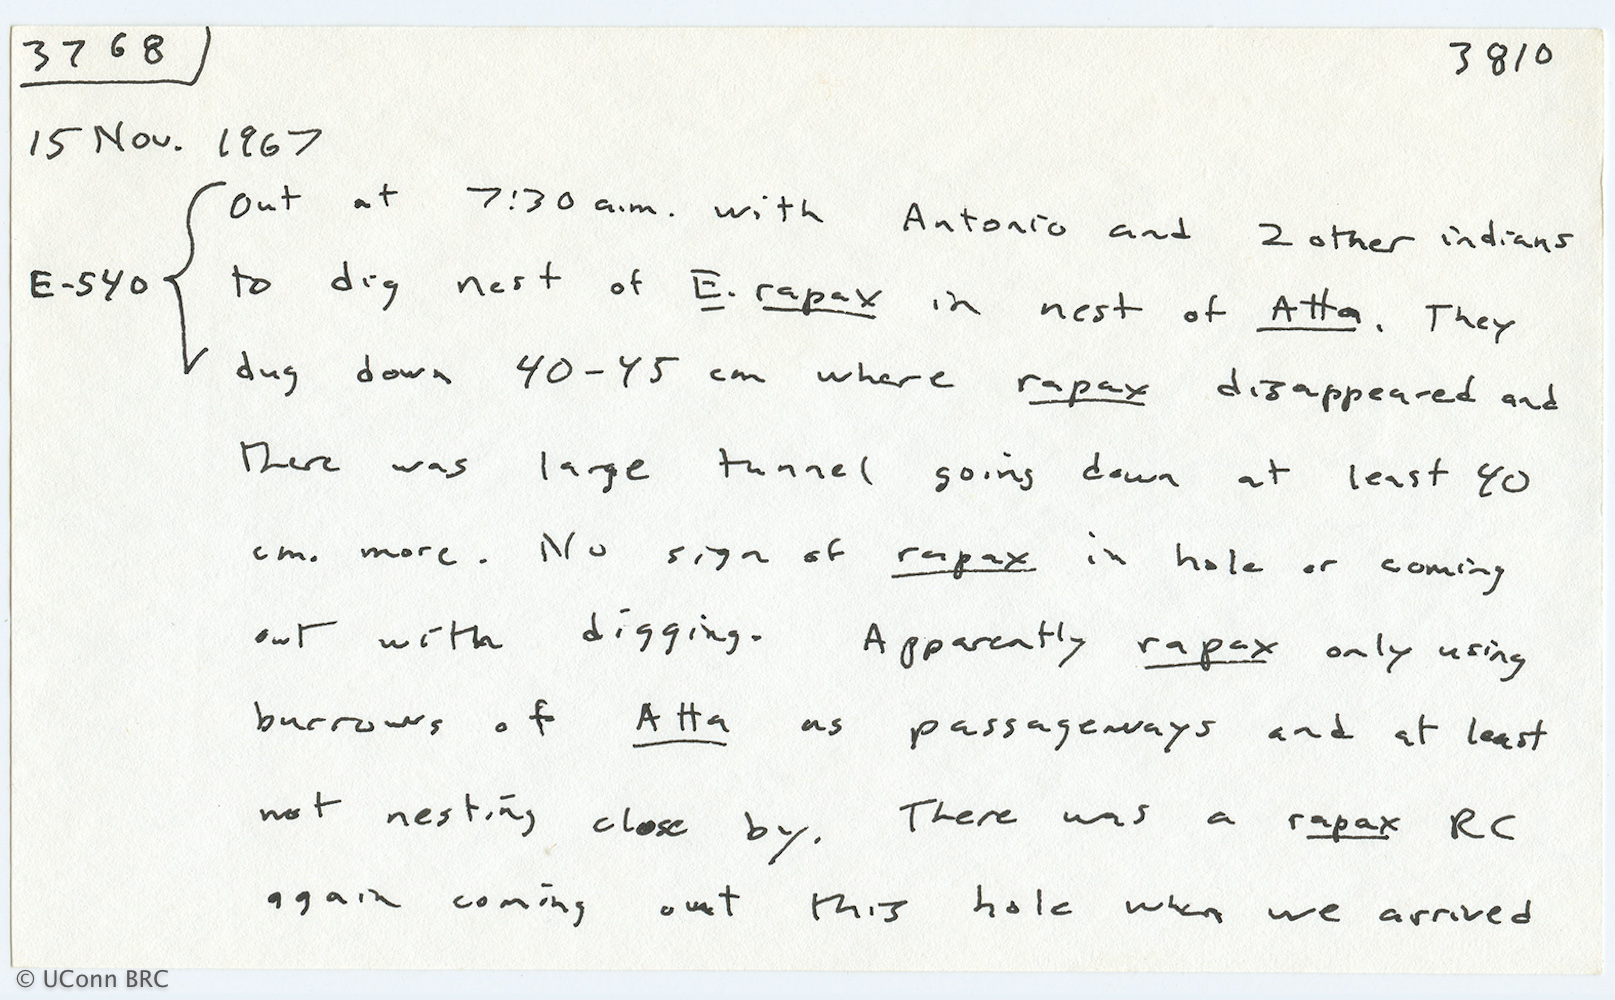 3768 3810
15 Nov. 1967
Out at 7:30 a.m. with Antonio and 2 other indians
E-540 to dig nest of E. rapax in nest of Atta. They
dug down 40-45 cm where rapax disappeared and
there was large tunnel going down at least 40
cm. more. No sign of rapax in hole or coming
out with digging. Apparently rapax only using
burrows of Atta as passageways and at least
not nesting close by. There was a rapax RC
again coming out this hole when we arrived
© UConn BRC